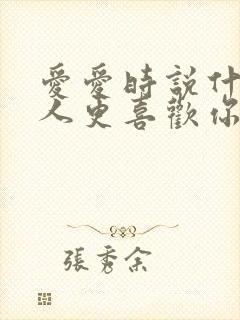 愛愛時說什
人更喜歡你
張秀余